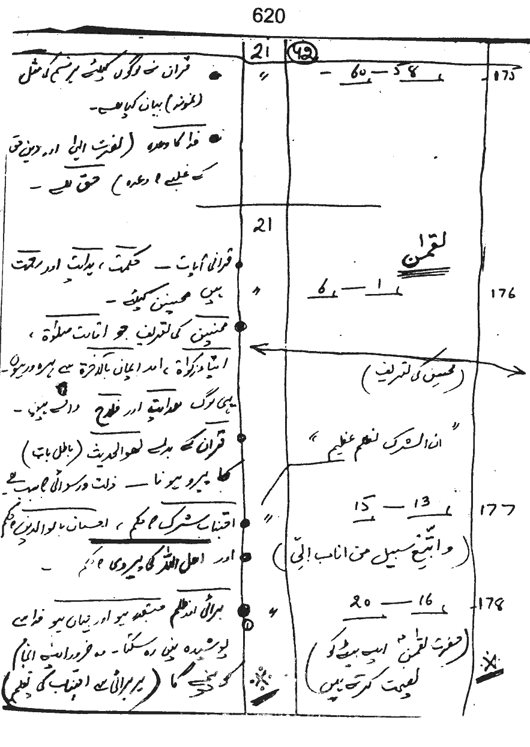 620
21 42
175 58 — 60 " • قرآن نے لوگوں کیلئے ہر قسم کا مثل
(نمونہ) بیان کیا ہے۔
• خدا کا وعدہ ( اور دین حق
کے غلبے کا وعدہ) حق ہے۔
21
لقمٰن
• قرآنی آیات — حکمت، ہدایت اور رحمت
176 1 — 6 " ہیں محسنین کیلئے۔
• محسنین کی تعریف جو اقامت صلوٰۃ،
ایتاء زکوٰۃ، اور ایمان بالآخرۃ سے بہرہ ور ہیں۔
(محسنین کی تعریف)
یہی لوگ ہدایت اور فلاح والے ہیں۔
• قرآن کے بدلے لھو الحدیث (باطل بات)
"ان الشرک لظلم عظیم"
کا پیرو ہونا — ذلت و رسوائی کا سبب ہے
177 13 — 15 " • اجتناب شرک کا حکم، احسان بالوالدین کا حکم
(واتبع سبیل من اناب الیّ)
• اور اھل اللہ کی پیروی کا حکم۔
178 16 — 20 " • برائی اور ظلم ہو اور جہاں ہو خدا سے
(حضرت لقمٰن اپنے بیٹے کو
پوشیدہ نہیں رہ سکتا۔ وہ ضرور اپنے انجام
نصیحت کرتے ہیں
کو پہنچے گا (ہر برائی سے اجتناب کی تعلیم)